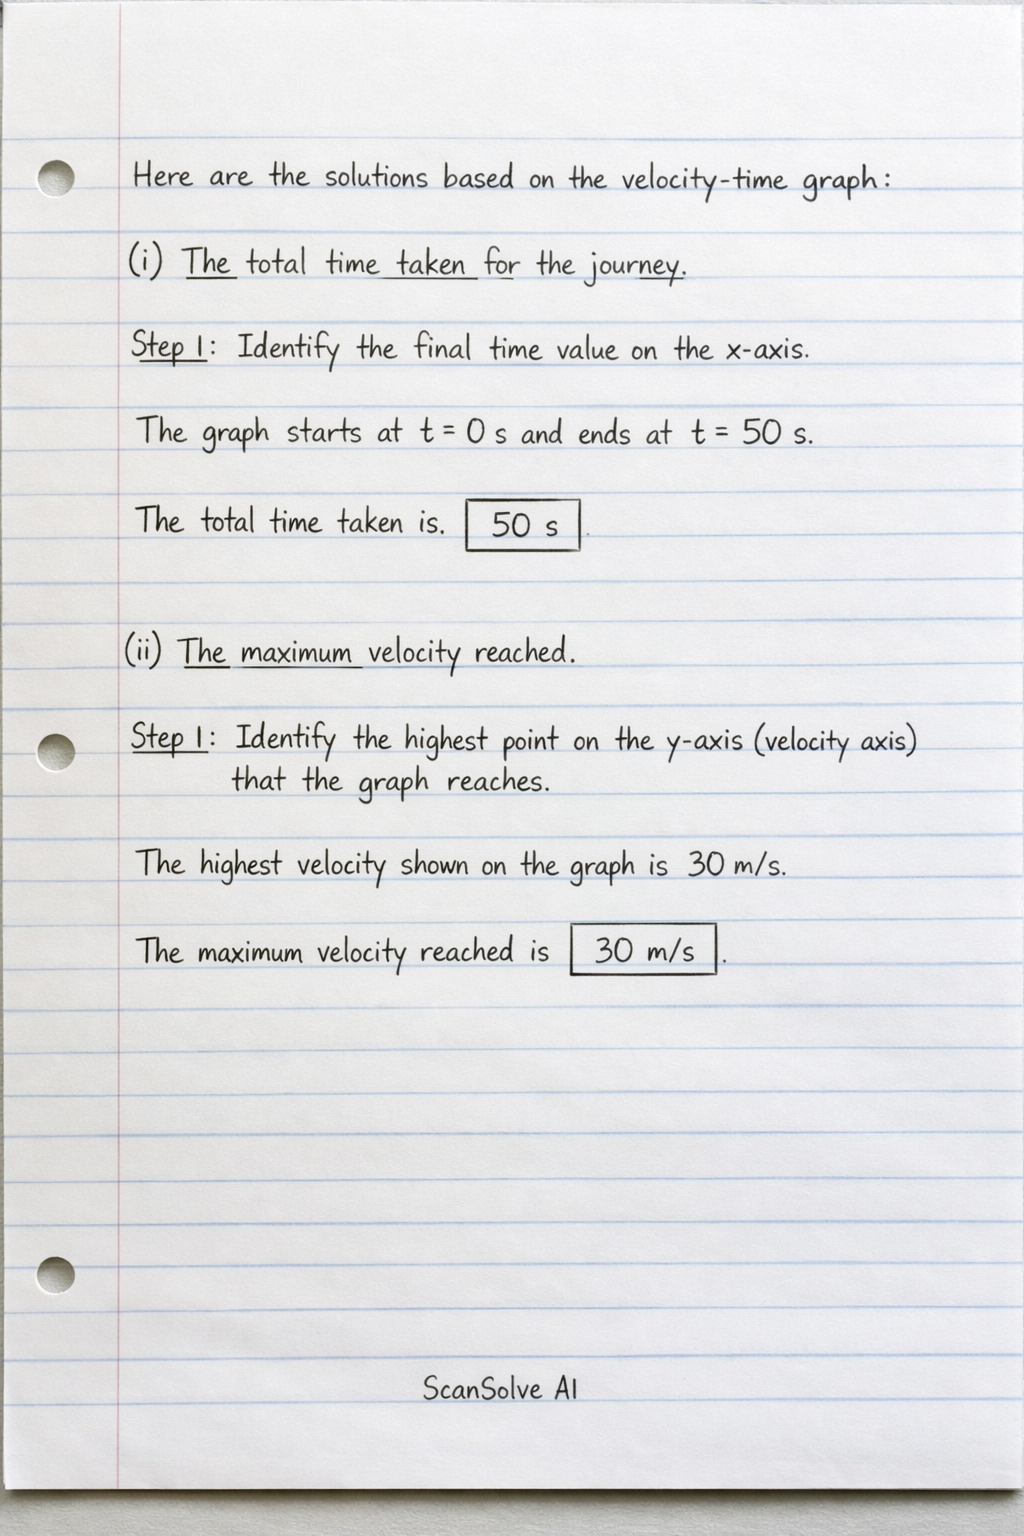 Here are the solutions based on the velocity-time graph:
(i) The total time taken for the journey.
Step 1: Identify the final time value on the x-axis.
The graph starts at t = 0 s and ends at t = 50 s.
The total time taken is. 50 s
(ii) The maximum velocity reached.
Step 1: Identify the highest point on the y-axis (velocity axis)
that the graph reaches.
The highest velocity shown on the graph is 30 m/s.
The maximum velocity reached is 30 m/s.
ScanSolve AI